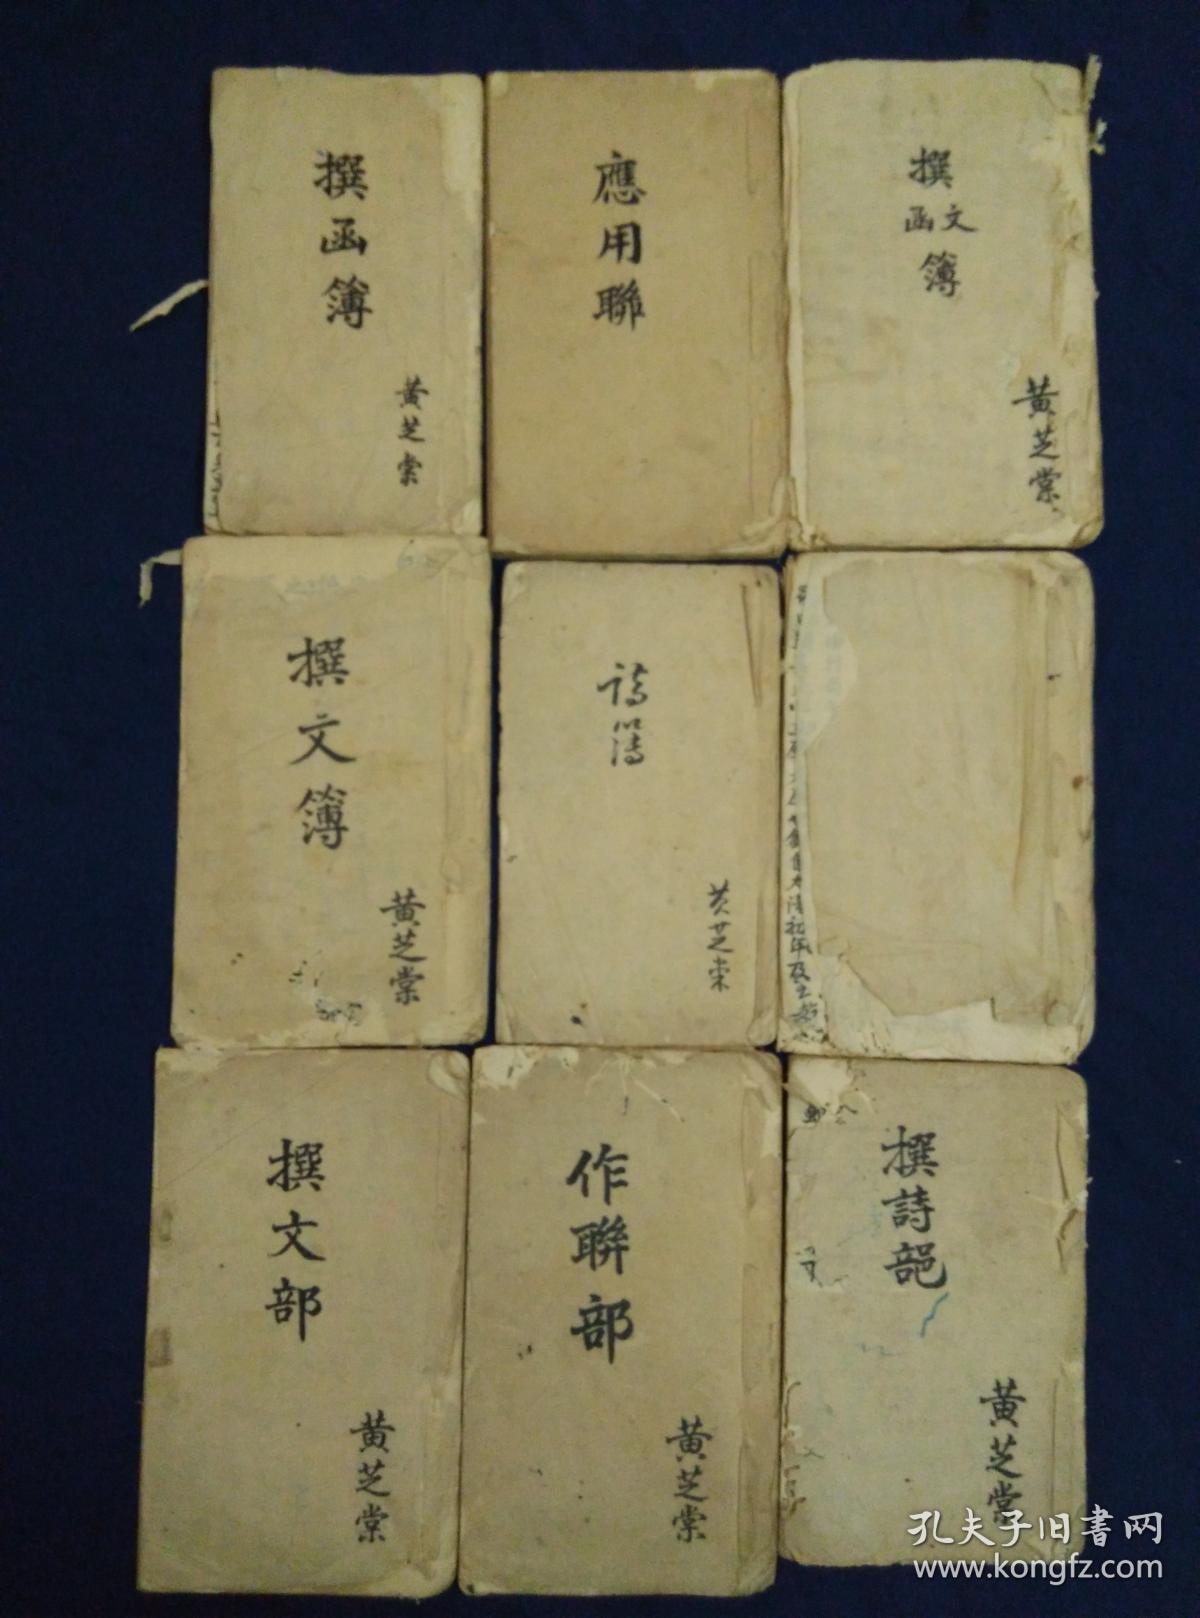 撰函簿
黄芝棠
應用聯
撰文函簿
黄芝棠
撰文簿
黄芝棠
詩簿
黄芝棠
撰文部
黄芝棠
作聯部
黄芝棠
撰詩部
黄芝棠
孔夫子旧書网
www.kongfz.com